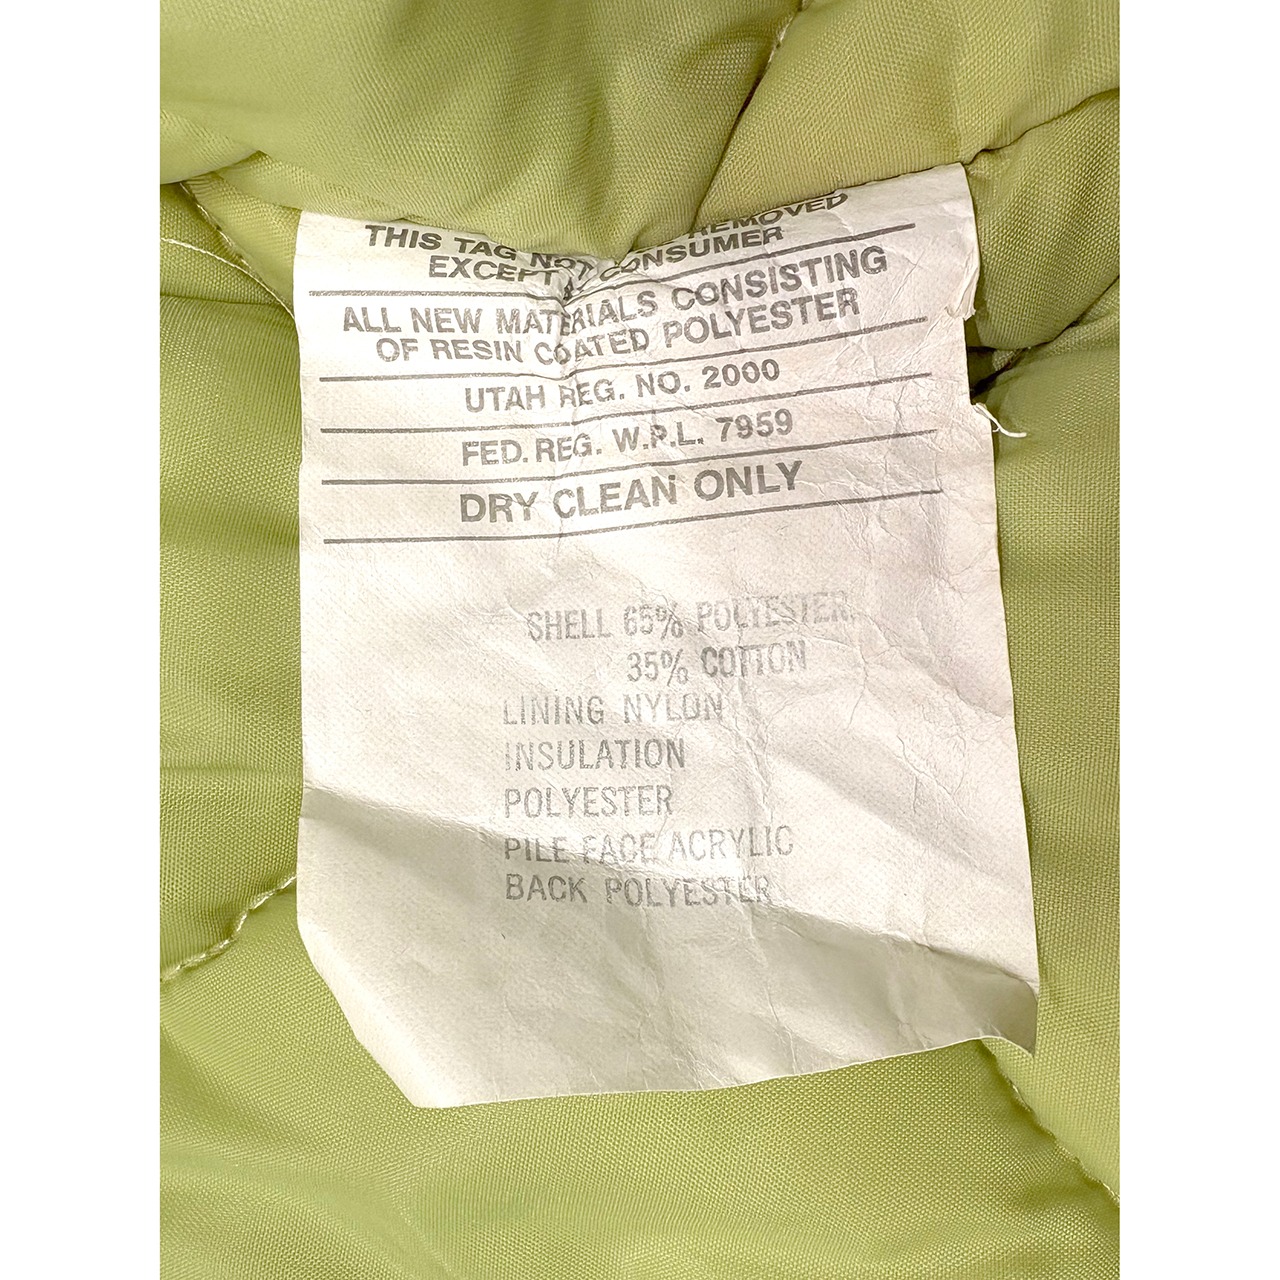 THIS TAG NOT REMOVED
EXCEPT CONSUMER
ALL NEW MATERIALS CONSISTING
OF RESIN COATED POLYESTER
UTAH REG. NO. 2000
FED. REG. W.P.L. 7959
DRY CLEAN ONLY
SHELL 65% POLYESTER,
35% COTTON
LINING NYLON
INSULATION
POLYESTER
PILE FACE ACRYLIC
BACK POLYESTER